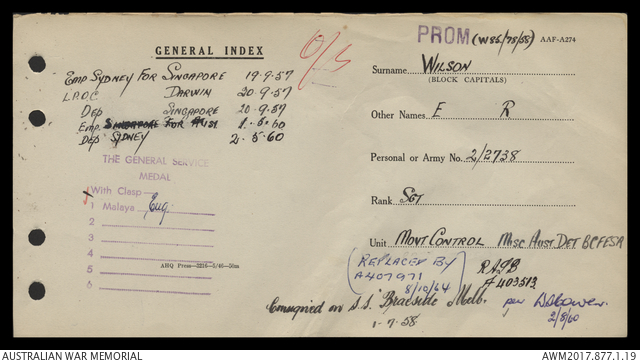 PROM (W86/78/58) AAF-A274
GENERAL INDEX
O/S
Emp SYDNEY FOR SINGAPORE 19.9.57
DARWIN 20.9.57
Dep SINGAPORE 20.9.57
Emp. SINGAPORE FOR AUST 1.5.60
Dep SYDNEY 2.5.60
THE GENERAL SERVICE
MEDAL
With Clasp
1 Malaya Eng.
2
3
4
5
6
AHQ Prom—5216—5/46—50m
Surname WILSON
(BLOCK CAPITALS)
Other Names E R
Personal or Army No. 2/2738
Rank SGT
Unit MOVT CONTROL MISC AUST DET BCFESR
(REPLACED BY
A407971
8/10/64)
A403513
Consigned on S.S. "Braeside" Melb.
1-7-58
per
2/8/60
AUSTRALIAN WAR MEMORIAL
AWM2017.877.1.19